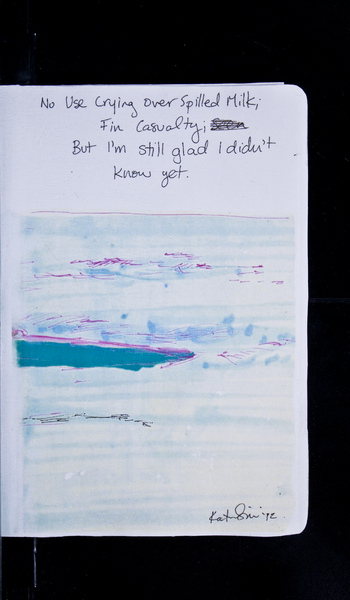 No Use Crying Over Spilled Milk;
Fin Casualty;
But I'm still glad I didn't
know yet.
'92